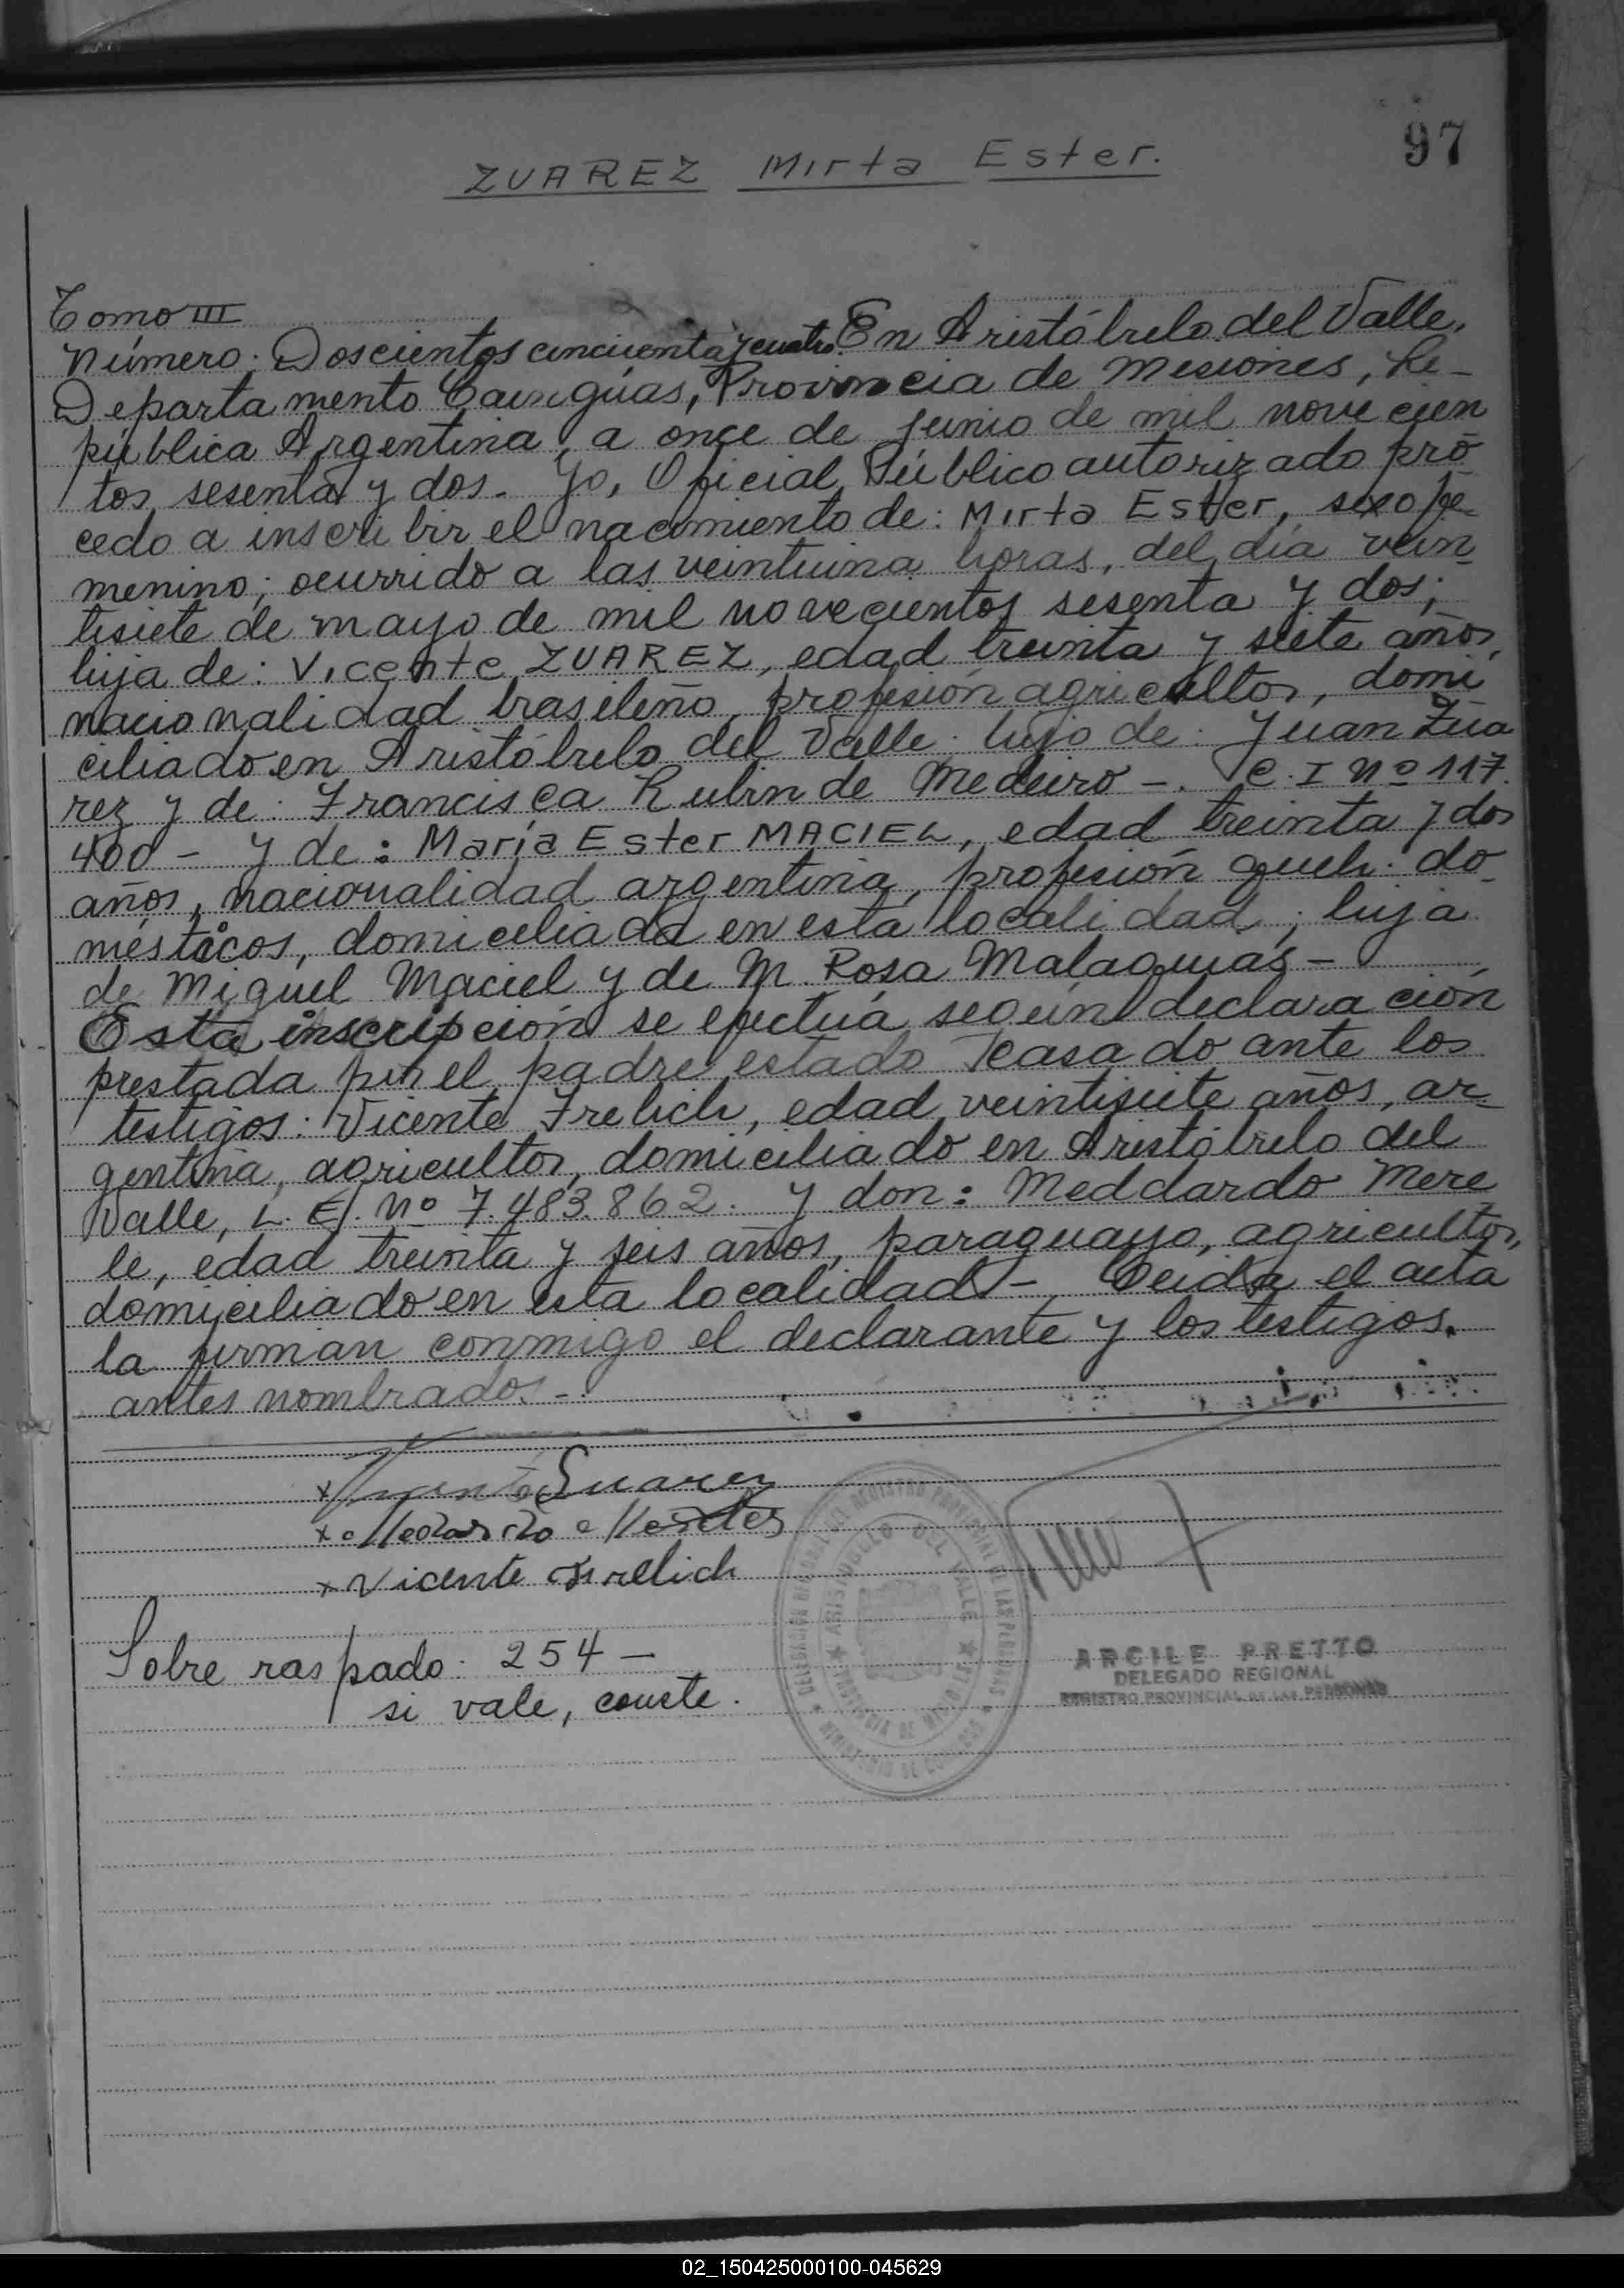 97
ZUAREZ Mirta Ester.
Tomo III
Número: Doscientos cincuenta y cuatro. En Aristóbulo del Valle,
Departamento Cainguas, Provincia de Misiones, Re-
pública Argentina, a once de junio de mil novecien
tos sesenta y dos. Yo, Oficial Público autorizado pro
cedo a inscribir el nacimiento de: Mirta Ester, sexo fe-
menino; ocurrido a las veintiuna horas, del día vein-
tisiete de mayo de mil novecientos sesenta y dos;
hija de: Vicente ZUAREZ, edad treinta y siete años,
nacionalidad brasileño, profesión agricultor, domi
ciliado en Aristóbulo del Valle. hijo de: Juan Zua
rez y de: Francisca Rubin de Medeiro -. C. I Nº 117.
400 - y de: María Ester MACIEL, edad treinta y dos
años, nacionalidad argentina, profesión queh. do-
mésticos, domiciliada en esta localidad; hija
de Miguel Maciel y de M. Rosa Malaquias -
Esta inscripción se efectúa según declaración
prestada por el padre estado casado ante los
testigos: Vicente Frelich, edad veintisiete años, ar-
gentina, agricultor, domiciliado en Aristóbulo del
Valle, L. E. Nº 7.483.862. y don: Meddardo Mere
le, edad treinta y seis años, paraguayo, agricultor,
domiciliado en esta localidad -, Leida el acta
la firman conmigo el declarante y los testigos.
antes nombrados. -
x Suarez
x Medardo
x Vicente Frelich
Sobre raspado: 254 -
si vale, conste.
ARISTOBULO DEL VALLE
PROVINCIA DE MISIONES
ARGILE PRETTO
DELEGADO REGIONAL
REGISTRO PROVINCIAL DE LAS PERSONAS
02_150425000100-045629